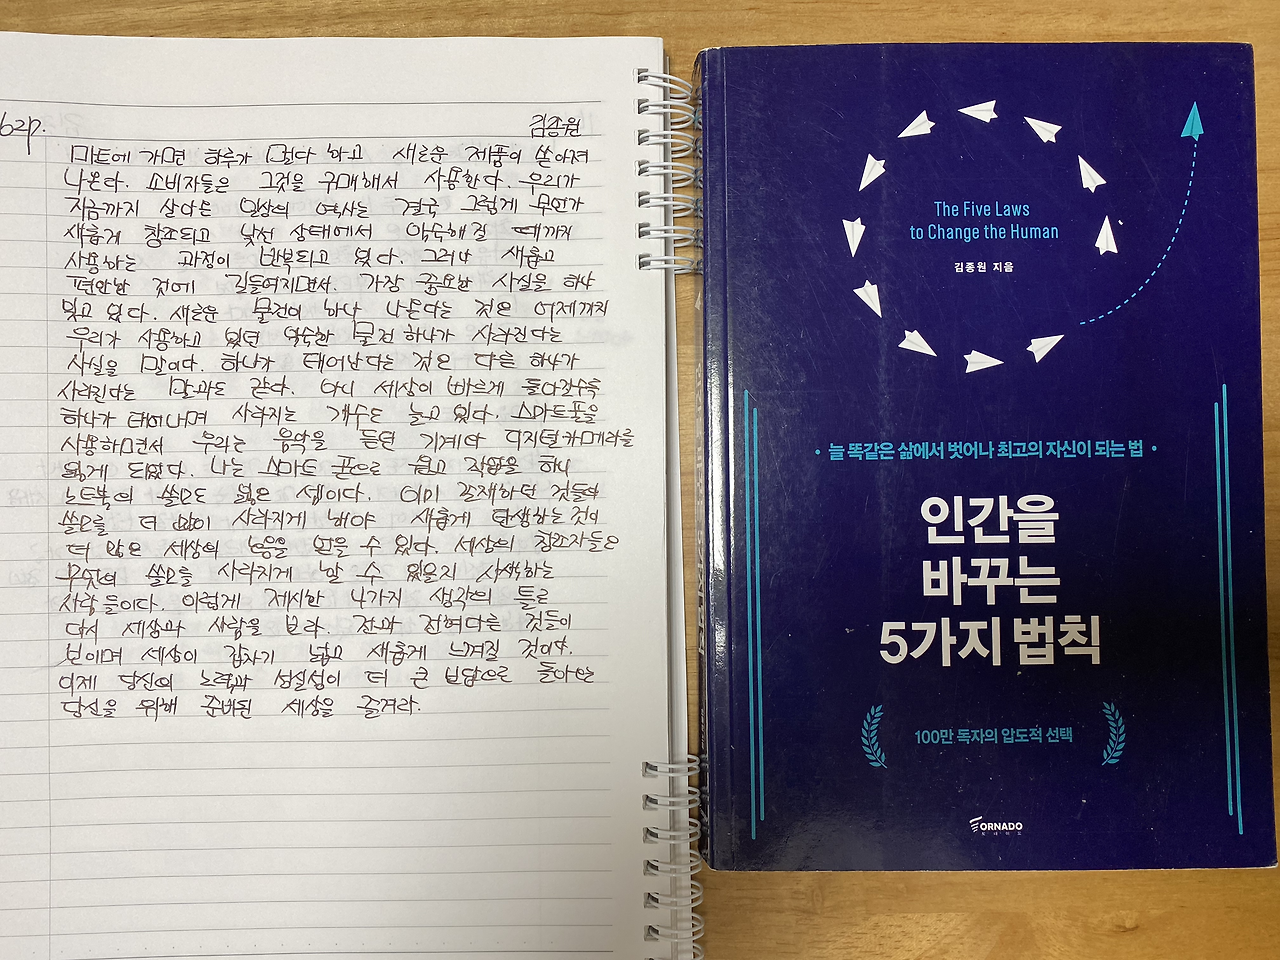 62p.
김종원
마트에 가면 하루가 멀다 하고 새로운 제품이 쏟아져
나온다. 소비자들은 그것을 구매해서 사용한다. 우리가
지금까지 살아온 일상의 역사는 결국 그렇게 무언가
새롭게 창조되고 낯선 상태에서 익숙해질 때까지
사용하는 과정이 반복되고 있다. 그러나 새롭고
편안한 것에 길들여지면서. 가장 중요한 사실을 하나
잊고 있다. 새로운 물건이 하나 나온다는 것은 어제까지
우리가 사용하고 있던 익숙한 물건 하나가 사라진다는
사실을 말이다. 하나가 태어난다는 것은 다른 하나가
사라진다는 말과도 같다. 아니 세상이 빠르게 돌아갈수록
하나가 태어나며 사라지는 개수도 늘고 있다. 스마트폰을
사용하면서 우리는 음악을 듣던 기계와 디지털카메라를
잃게 되었다. 나는 스마트 폰으로 글쓰고 작업을 하니
노트북의 쓸모도 잃은 셈이다. 이미 존재하던 것들의
쓸모를 더 많이 사라지게 해야 새롭게 탄생하는 것이
더 많은 세상의 호응을 얻을 수 있다. 세상의 창조자들은
무엇의 쓸모를 사라지게 할 수 있을지 사색하는
사람들이다. 이렇게 제시한 4가지 생각의 틀로
다시 세상과 사람을 보라. 전과 전혀 다른 것들이
보이며 세상이 갑자기 넓고 새롭게 느껴질 것이다.
이제 당신의 노력과 성실성이 더 큰 보답으로 돌아온
당신을 위해 준비된 세상을 즐겨라.
The Five Laws
to Change the Human
김종원 지음
• 늘 똑같은 삶에서 벗어나 최고의 자신이 되는 법 •
인간을
바꾸는
5가지 법칙
100만 독자의 압도적 선택
TORNADO
토네이도